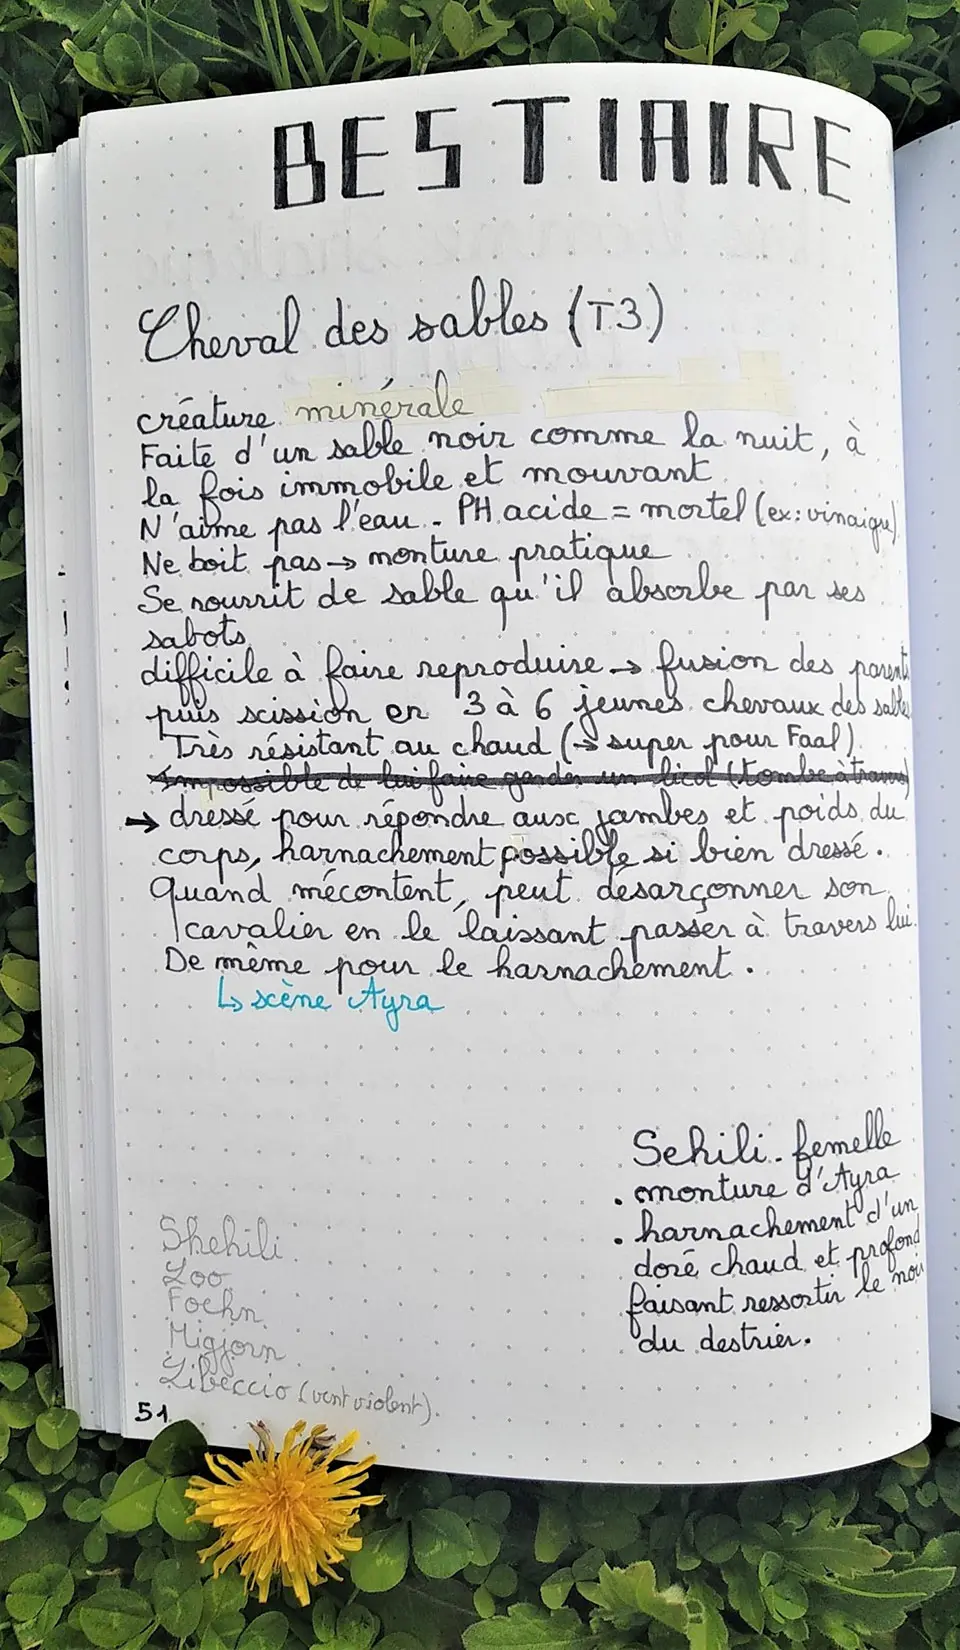 BESTIAIRE
Cheval des sables (T3)
créature minérale
Faite d'un sable noir comme la nuit, à
la fois immobile et mouvant
N'aime pas l'eau - PH acide = mortel (ex: vinaigre)
Ne boit pas → monture pratique
Se nourrit de sable qu'il absorbe par ses
sabots
difficile à faire reproduire → fusion des parents
puis scission en 3 à 6 jeunes chevaux des sables
Très résistant au chaud (→ super pour Faal)
Impossible de lui faire garder un licol (tombe à travers)
→ dressé pour répondre aux jambes et poids du
corps, harnachement possible si bien dressé.
Quand mécontent, peut désarçonner son
cavalier en le laissant passer à travers lui.
De même pour le harnachement.
↳ scène Ayra
Sehili - femelle
. monture d'Ayra
. harnachement d'un
doré chaud et profond
faisant ressortir le noir
du destrier.
Shehili
Loo
Foehn
Migjorn
Libeccio (vent violent).
51